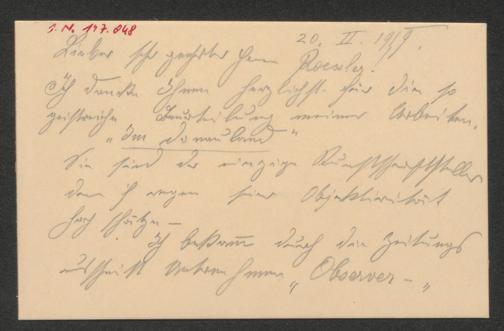 I. N. 147.048
20. II. 1919.
Lieber sehr geehrter Herr Roessler.
Ich danke Ihnen herzlichst für die so
geistreiche Beurteilung meiner Arbeiten.
„Im Donauland"
Sie sind der einzige Kunstschriftsteller
den ich wegen seiner Objektivität
hoch schätze –
Ich bekam durch den Zeitungs
ausschnitt Unternehmen „Observer – "